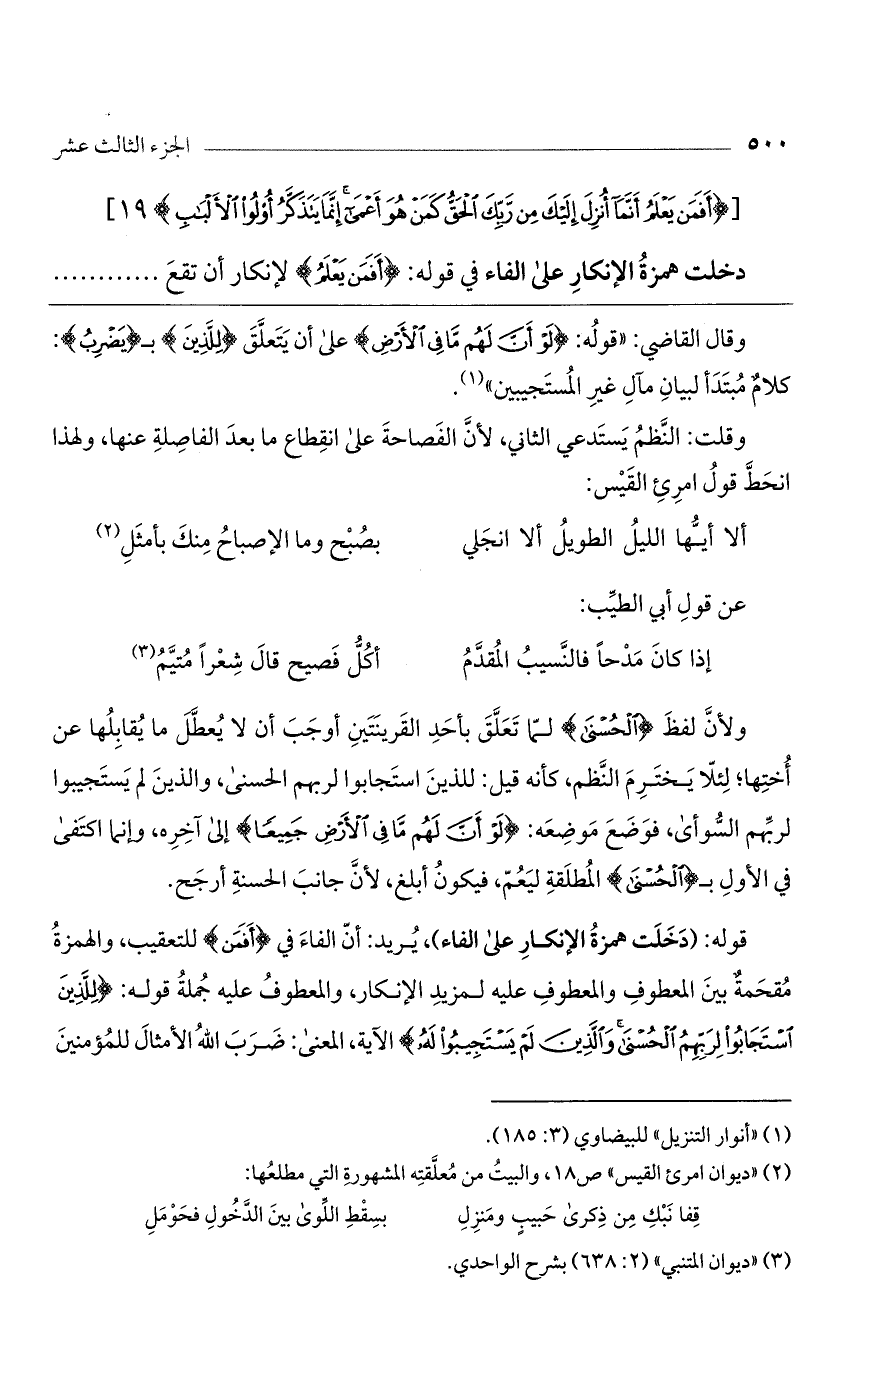 ٥٠٠ الجزء الثالث عشر
[﴿أَفَمَن يَعْلَمُ أَنَّمَآ أُنزِلَ إِلَيْكَ مِن رَّبِّكَ ٱلْحَقُّ كَمَنْ هُوَ أَعْمَىٰٓ ۚ إِنَّمَا يَتَذَكَّرُ أُو۟لُوا۟ ٱلْأَلْبَـٰبِ﴾ ١٩]
دخلت همزةُ الإنكارِ علىٰ الفاء في قوله: ﴿أَفَمَن يَعْلَمُ﴾ لإنكار أن تقعَ ............
وقال القاضي: «قولُه: ﴿لَوْ أَنَّ لَهُم مَّا فِى ٱلْأَرْضِ﴾ علىٰ أن يَتَعلَّقَ ﴿لِلَّذِينَ﴾ بـ﴿يَضْرِبُ﴾:
كلامٌ مُبتَدَأ لبيانِ مآلِ غيرِ المُستَجيبين»(١).
وقلت: النَّظمُ يَستَدعي الثاني، لأنَّ الفَصاحةَ علىٰ انقِطاع ما بعدَ الفاصِلةِ عنها، ولهذا
انحَطَّ قولُ امرِئِ القَيْس:
ألا أيـُّها الليلُ الطويلُ ألا انجَلي بصُبْح وما الإصباحُ مِنكَ بأمثَلِ(٢)
عن قولِ أبي الطيِّب:
إذا كانَ مَدْحاً فالنَّسيبُ المُقدَّمُ أكُلُّ فَصيح قالَ شِعْراً مُتيَّمُ(٣)
ولأنَّ لفظَ ﴿ٱلْحُسْنَىٰ﴾ لـمّا تَعَلَّقَ بأحَدِ القَرينَتَينِ أوجَبَ أن لا يُعطَّلَ ما يُقابِلُها عن
أُختِها؛ لِئلّا يَـختَـرِمَ النَّظم، كأنه قيل: للذينَ استَجابوا لربهم الحسنىٰ، والذينَ لم يَستَجيبوا
لربِّهم السُّوأىٰ، فوَضَعَ مَوضِعَه: ﴿لَوْ أَنَّ لَهُم مَّا فِى ٱلْأَرْضِ جَمِيعًا﴾ إلىٰ آخِرِه، وإنما اكتَفىٰ
في الأولِ بـ﴿ٱلْحُسْنَىٰ﴾ المُطلَقةِ ليَعُمّ، فيكونُ أبلغ، لأنَّ جانبَ الحسنةِ أرجَح.
قوله: (دَخَلَت همزةُ الإنكـارِ علىٰ الفاء)، يُـريد: أنّ الفاءَ في ﴿أَفَمَن﴾ للتعقيب، والهمزةُ
مُقحَمةٌ بينَ المعطوفِ والمعطوفِ عليه لـمزيدِ الإنـكار، والمعطوفُ عليه جُملةُ قولـه: ﴿لِلَّذِينَ
ٱسْتَجَابُوا۟ لِرَبِّهِمُ ٱلْحُسْنَىٰ ۚ وَٱلَّذِينَ لَمْ يَسْتَجِيبُوا۟ لَهُۥ﴾ الآية، المعنىٰ: ضَـرَبَ اللهُ الأمثالَ للمُؤمنينَ
(١) «أنوار التنزيل» للبيضاوي (٣: ١٨٥).
(٢) «ديوان امرئ القيس» ص١٨، والبيتُ من مُعلَّقتِه المشهورةِ التي مطلعُها:
قِفا نَبْكِ مِن ذِكرىٰ حَبيبٍ ومَنزِلِ بسِقْطِ اللِّوىٰ بينَ الدَّخُولِ فحَوْمَلِ
(٣) «ديوان المتنبي» (٢: ٦٣٨) بشرح الواحدي.